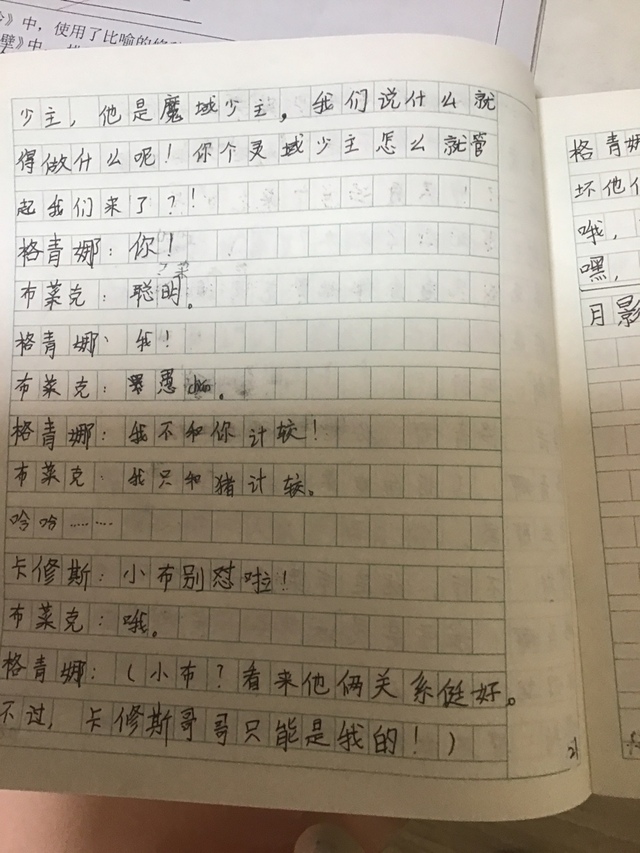 》中，使用了比喻的
》中
少主，他是魔域少主，我们说什么就
得做什么呢！你个灵域少主怎么就管
起我们来了？！
格青娜：你！
布莱克：聪明。
格青娜：我！
布莱克：愚。
格青娜：我不和你计较！
布莱克：我只和猪计较。
哈哈……
卡修斯：小布别怼啦！
布莱克：哦。
格青娜：（小布？看来他俩关系挺好。
不过，卡修斯哥哥只能是我的！）
21
格青娜
坏他
哦，
嘿，
月影